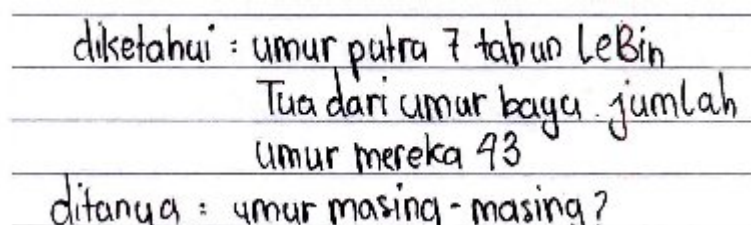 diketahui : umur putra 7 tahun LeBih
Tua dari umur bayu. jumlah
umur mereka 43
ditanya : umur masing-masing?